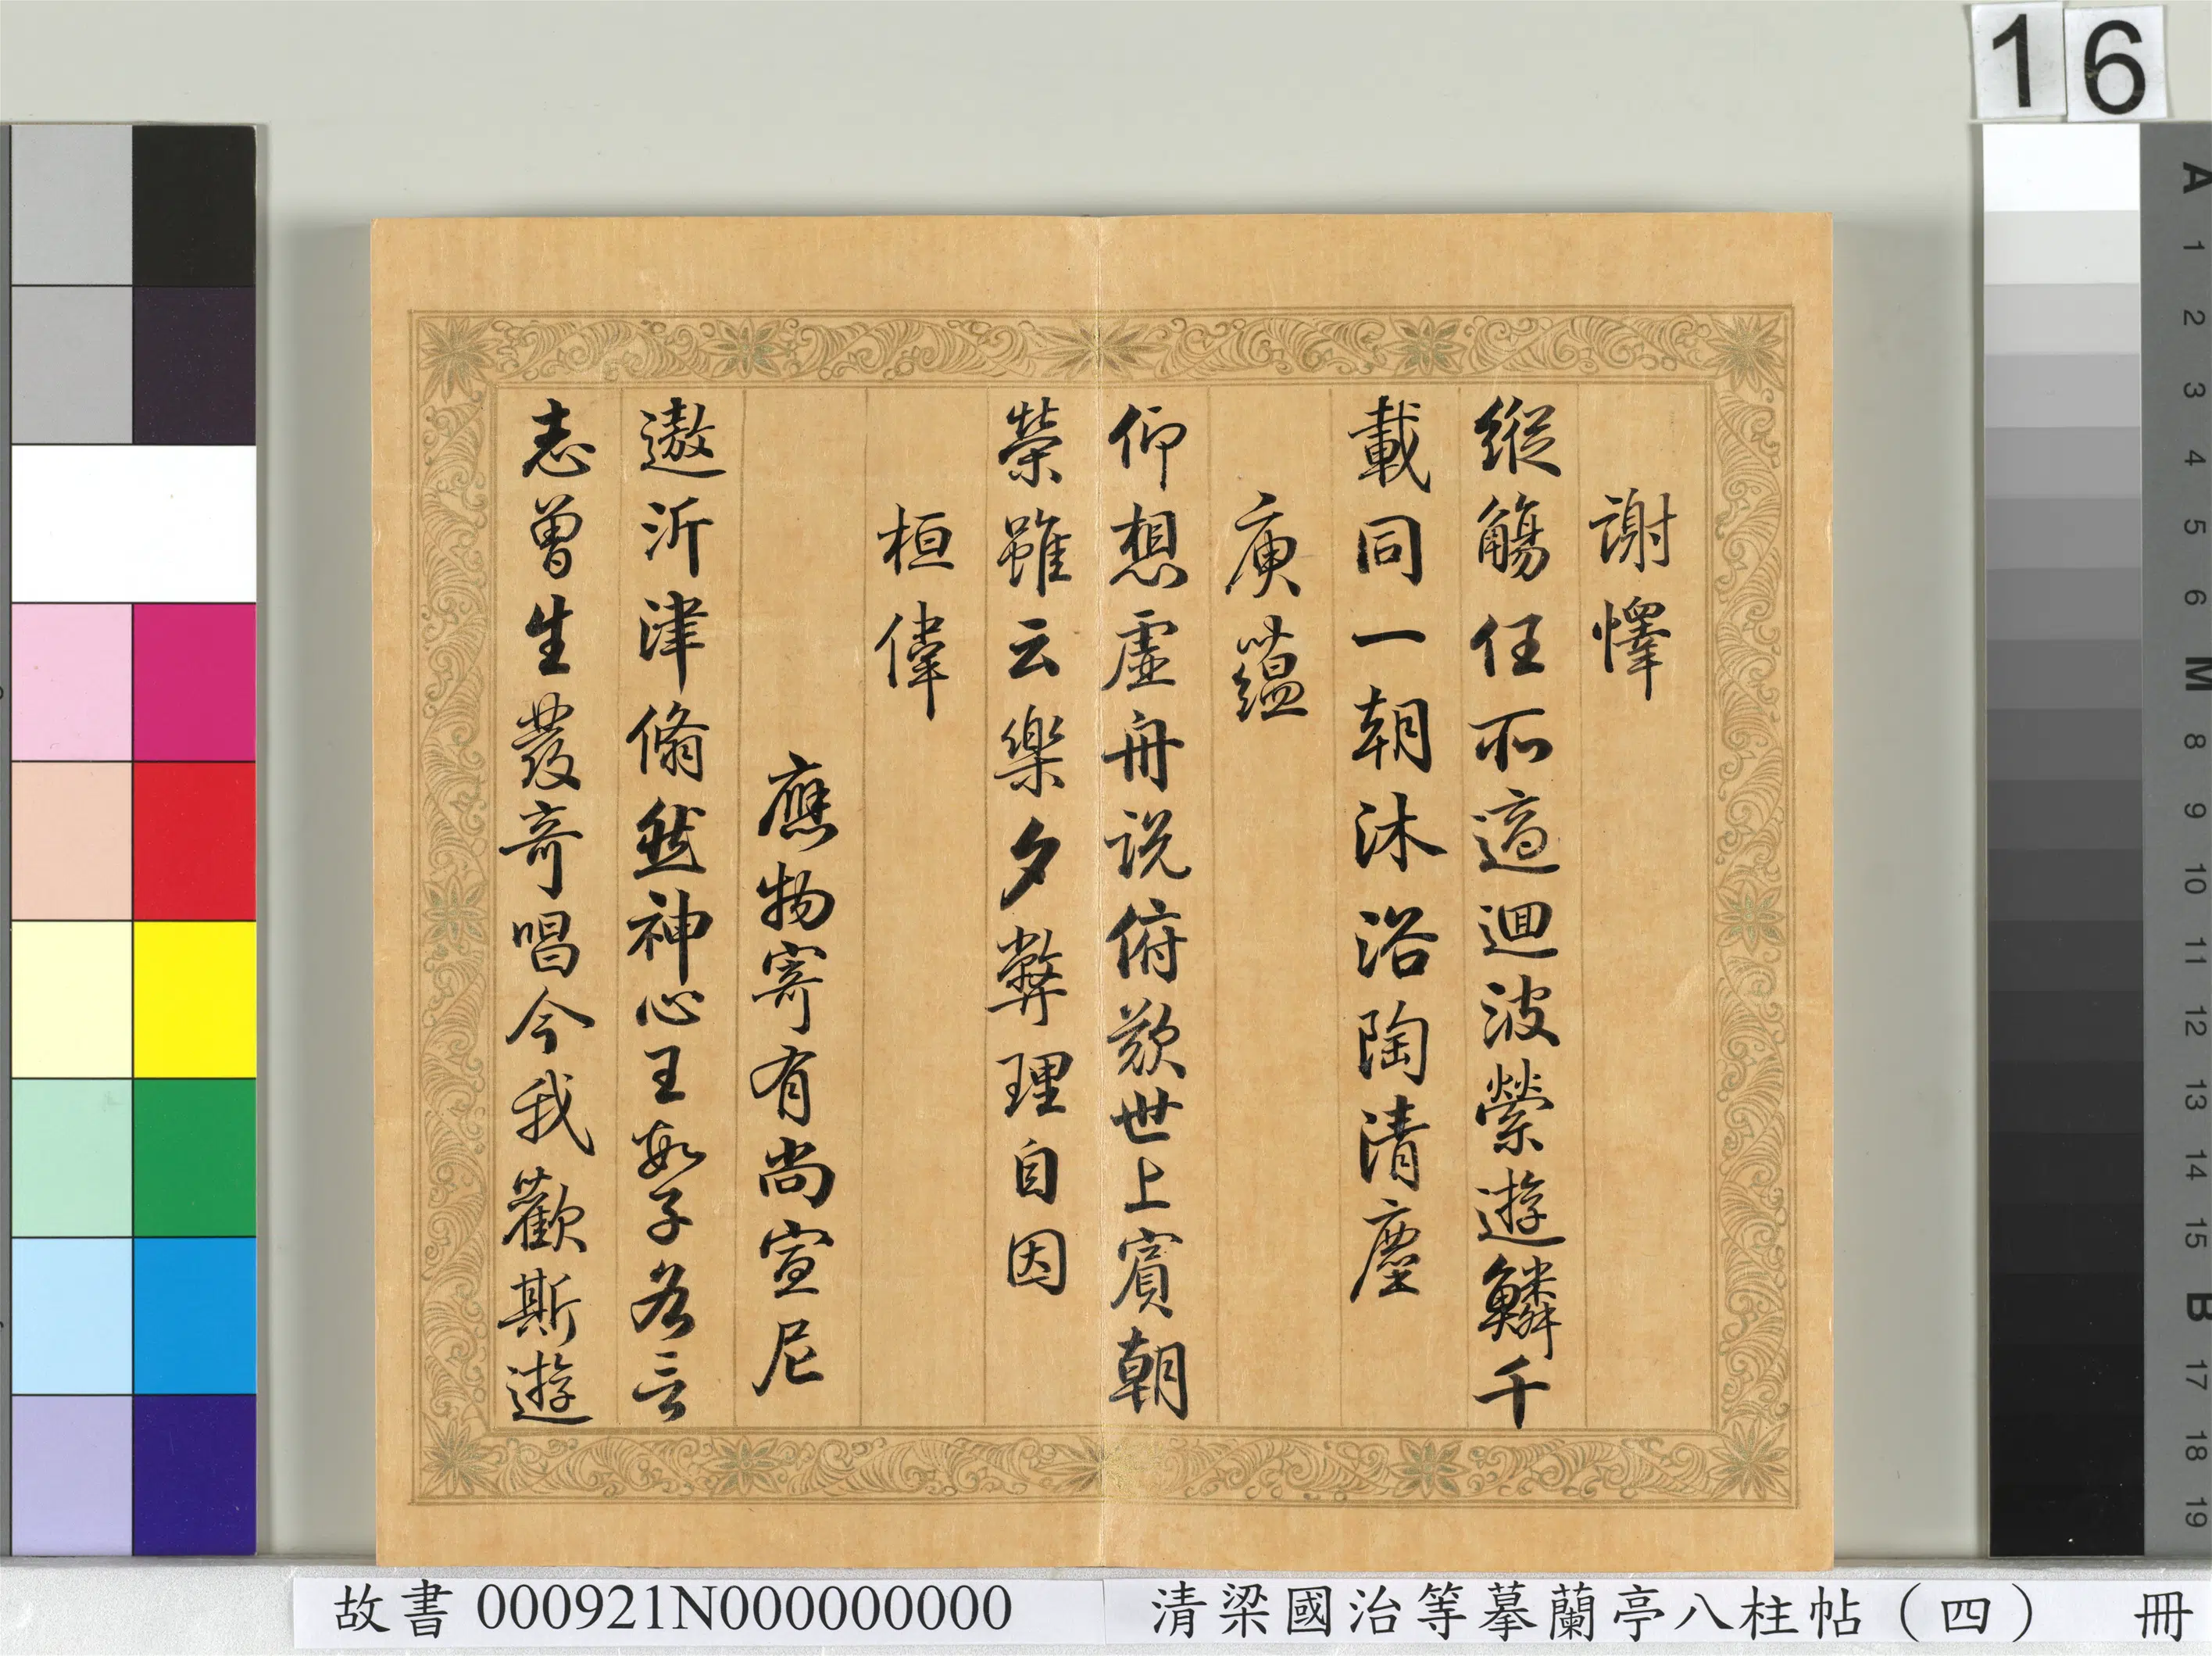 16
謝懌
縱觴任所適迴波縈遊鱗千
載同一朝沐浴陶清塵
庾蘊
仰想虛舟說俯歎世上賓朝
榮雖云樂夕弊理自因
桓偉
應物寄有尚宣尼
遨沂津翛然神心王數子各言
志曾生發奇唱今我歡斯遊
A
1
2
3
4
5
6
M
8
9
10
11
12
13
14
15
B
17
18
19
故書 000921N000000000
清梁國治等摹蘭亭八柱帖（四） 冊